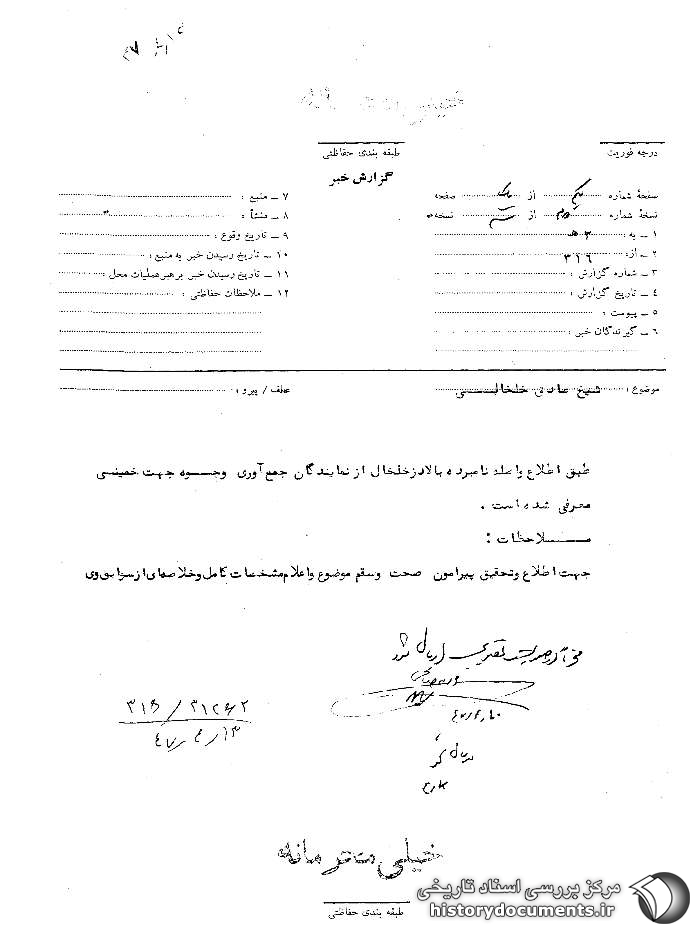 درجه فوریت
طبقه بندی حفاظتی
گزارش خبر
صفحهٔ شماره یکم از یک صفحه
نسخهٔ شماره دوم از سه نسخه
۱ – به ۳ هـ
۲ – از: ۳۱۶
۳ – شماره گزارش:
۴ – تاریخ گزارش:
۵ – پیوست:
۶ – گیرندگان خبر:
۷ – منبع:
۸ – منشأ:
۹ – تاریخ وقوع:
۱۰ – تاریخ رسیدن خبر به منبع:
۱۱ – تاریخ رسیدن خبر برهبر عملیات محل
۱۲ – ملاحظات حفاظتی:
موضوع: شیخ هادی خلخالی
عطف / پیرو:
طبق اطلاع واصله نامبرده بالا در خلخال از نمایندگان جمع آوری وجوه جهت خمینی
معرفی شده است.
ملاحظات:
جهت اطلاع و تحقیق پیرامون صحت و سقم موضوع و اعلام مشخصات کامل و خلاصه‌ای از سوابق وی
۳۱۶ / ۳۱۲۶۲
خیلی محرمانه
طبقه بندی حفاظتی
مرکز بررسی اسناد تاریخی
historydocuments.ir